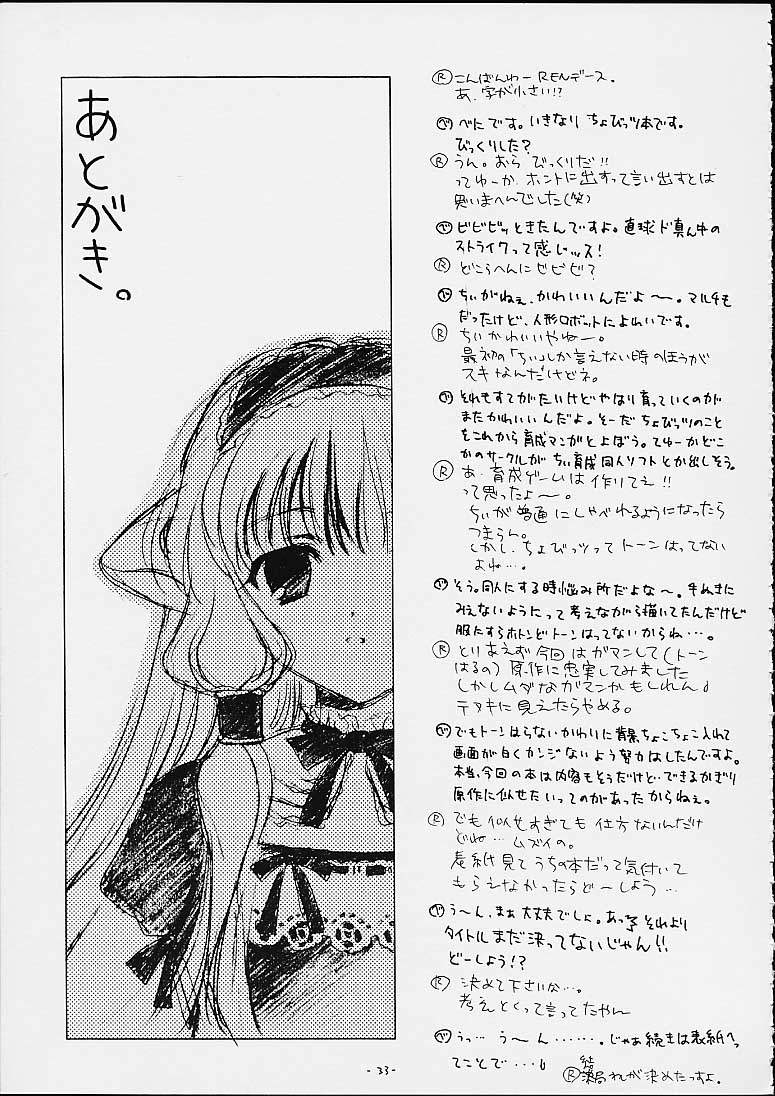 あとがき。
Ⓡ こんばんわー RENデース。
あ、字が小さい!?
べ べにです。いきなり ちょびッツ本です。
びっくりした?
Ⓡ うん。おら びっくりだ!!
ってゆーか ホントに出すって言い出すとは
思いまへんでした(笑)
べ ビビビッときたんですよ。直球ド真ん中の
ストライクって感じッス!
Ⓡ どこらへんにビビビ?
べ ちぃがねぇ、かわいいんだよ〜。マルチも
だったけど、人形ロボットによわいです。
Ⓡ ちぃかわいいやねー。
最初の「ちぃ」しか言えない時のほうが
スキなんだけどネ。
べ それもすてがたいけどやはり育っていくのが
またかわいいんだよ。そーだ ちょびッツのこと
をこれから育成マンガとよぼう。てゆーかどこ
かのサークルが ちぃ育成同人ソフトとか出しそう。
Ⓡ あ、育成ゲームは 作りてえ!!
って思ったよ〜。
ちぃが普通にしゃべれるようになったら
つまらん。
しかし、ちょびッツってトーンはってない
よね…。
べ そう。同人にする時悩み所だよな〜。手ぬきに
みえないようにって考えながら描いてたんだけど
服にすらホトンどトーンはってないからね…。
Ⓡ とりあえず今回はガマンして(トーン
はるの) 原作に忠実してみました
しかしムダなガマンかもしれん
テヌキに見えたらやめる。
べ でもトーンはらないかわいに背景ちょこちょこ入れて
画面が白くカンジないよう努力はしたんですよ。
本当、今回の本は内容もそうだけど…できるかぎり
原作に似せたいってのがあったからねぇ。
Ⓡ でも似せすぎても仕方ないんだけ
どね…ムズイの。
表紙見てうちの本だって気付いて
もらえなかったらどーしよう…
べ う〜ん、まぁ大丈夫でしょ。あっ それより
タイトルまだ決ってないじゃん!!
どーしよう!?
Ⓡ 決めて下さいな…。
考えとくって言ってたやん
べ うっ… う〜ん……。じゃあ続きは表紙へっ
てことで…
Ⓡ 結局 れんが決めたっすよ。
- 33 -